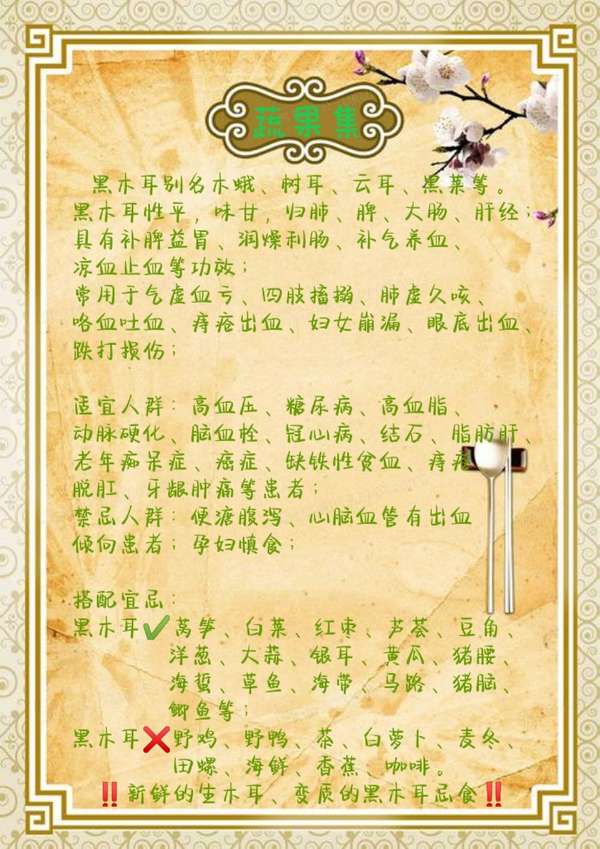 蔬果集
黑木耳别名木蛾、树耳、云耳、黑菜等。
黑木耳性平,味甘,归肺、脾、大肠、肝经;
具有补脾益胃、润燥利肠、补气养血、
凉血止血等功效;
常用于气虚血亏、四肢搐搦、肺虚久咳、
咯血吐血、痔疮出血、妇女崩漏、眼底出血、
跌打损伤;
适宜人群:高血压、糖尿病、高血脂、
动脉硬化、脑血栓、冠心病、结石、脂肪肝
老年痴呆症、癌症、缺铁性贫血、痔疮
脱肛、牙龈肿痛等患者;
禁忌人群:便溏腹泻、心脑血管有出血
倾向患者;孕妇慎食;
搭配宜忌:
黑木耳✔莴笋、白菜、红枣、芦荟、豆角、
洋葱、大蒜、银耳、黄瓜、猪腰、
海蜇、草鱼、海带、马路、猪脑、
鲫鱼等;
黑木耳❌野鸡、野鸭、茶、白萝卜、麦冬、
田螺、海鲜、香蕉、咖啡。
‼新鲜的生木耳、变质的黑木耳忌食‼